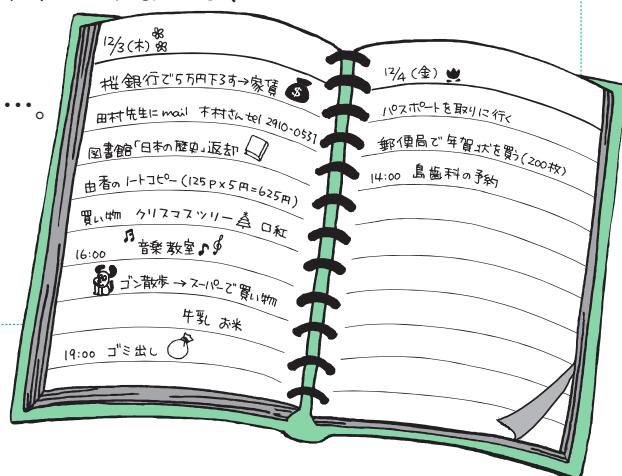 …。
12/3(木)
桜銀行で5万円下ろす→家賃
田村先生にmail 木村さんtel 2910-0531
図書館「日本の歴史」返却
由香のノートコピー(125P×5円=625円)
買い物 クリスマスツリー 口紅
16:00 音楽教室
ゴン散歩→スーパーで買い物
牛乳 お米
19:00 ゴミ出し
12/4(金)
パスポートを取りに行く
郵便局で年賀状を買う(200枚)
14:00 島歯科の予約